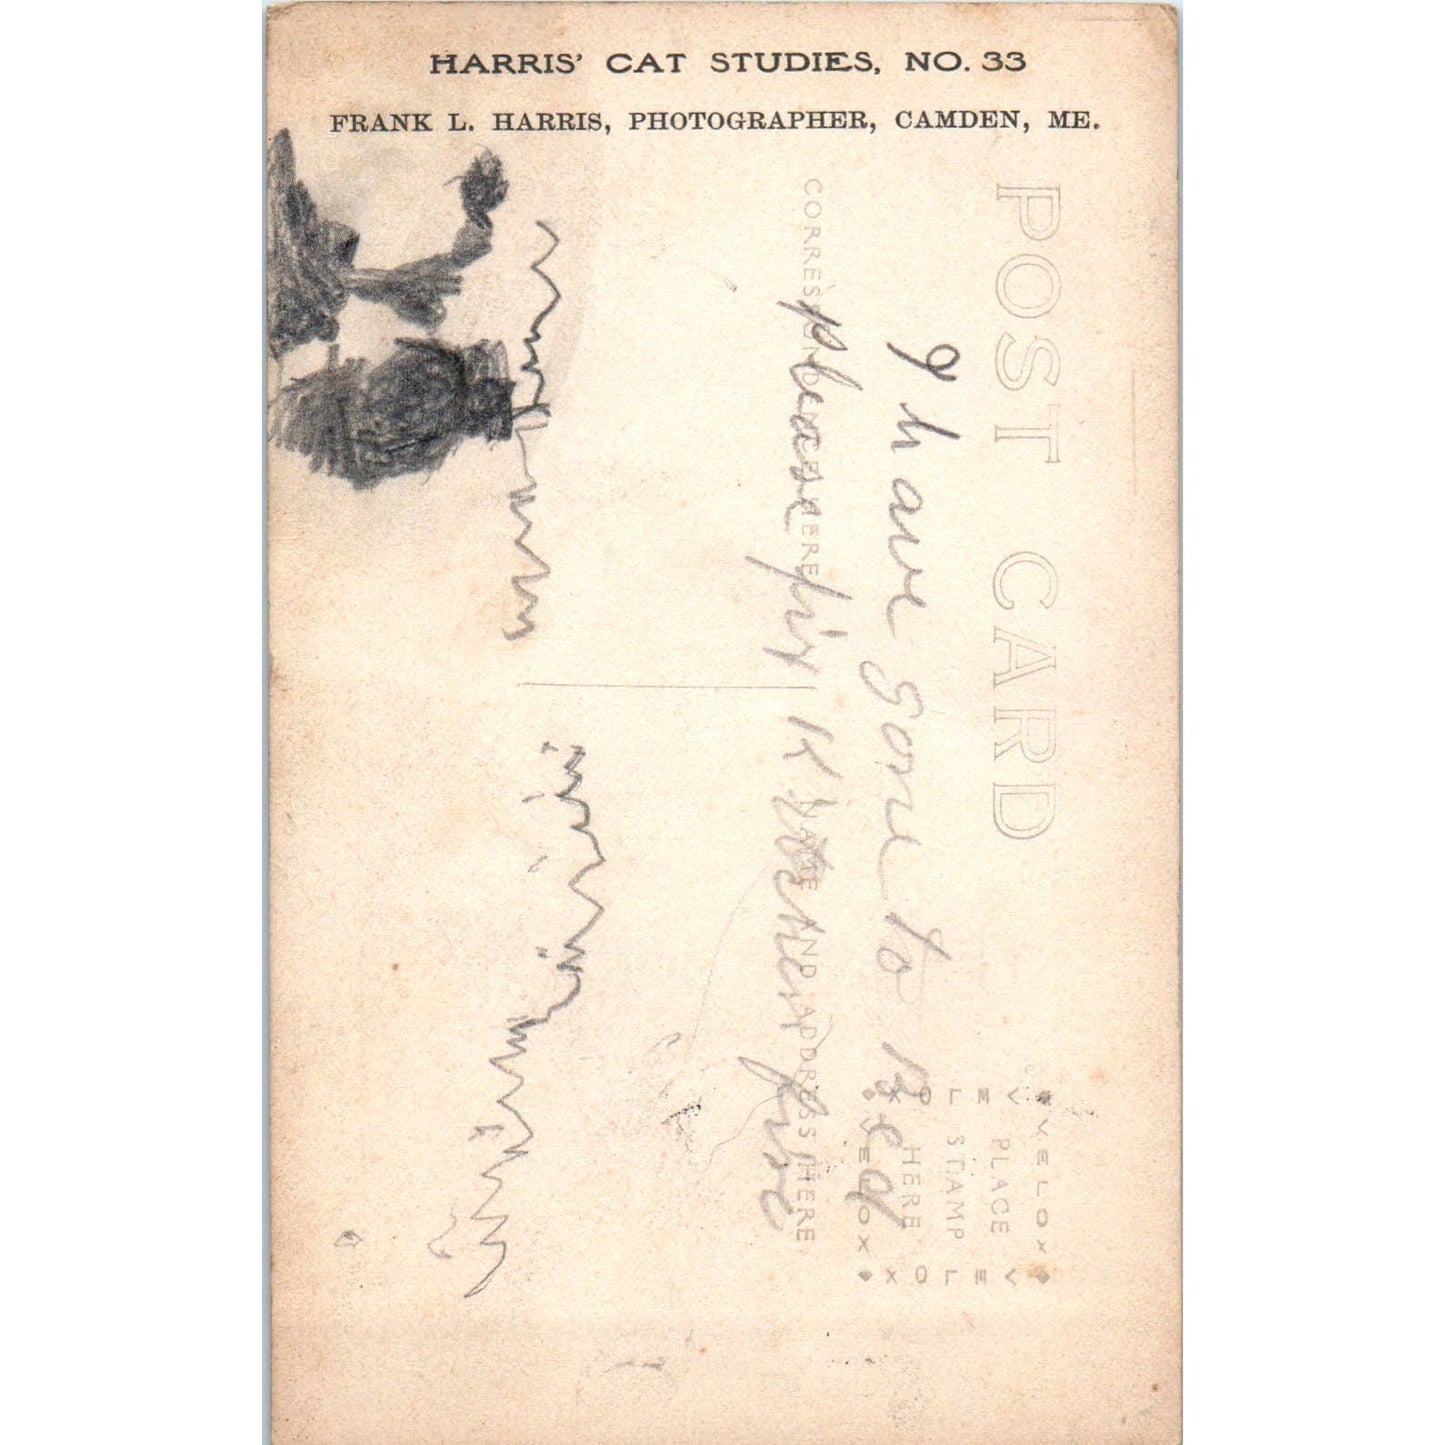 HARRIS' CAT STUDIES, NO. 33
FRANK L. HARRIS, PHOTOGRAPHER, CAMDEN, ME.
POST CARD
CORRESPONDENCE HERE
NAME AND ADDRESS HERE
VELOX
VELOX
VELOX
VELOX
PLACE
STAMP
HERE
I have gone to Bed
please fix Kitchen fire